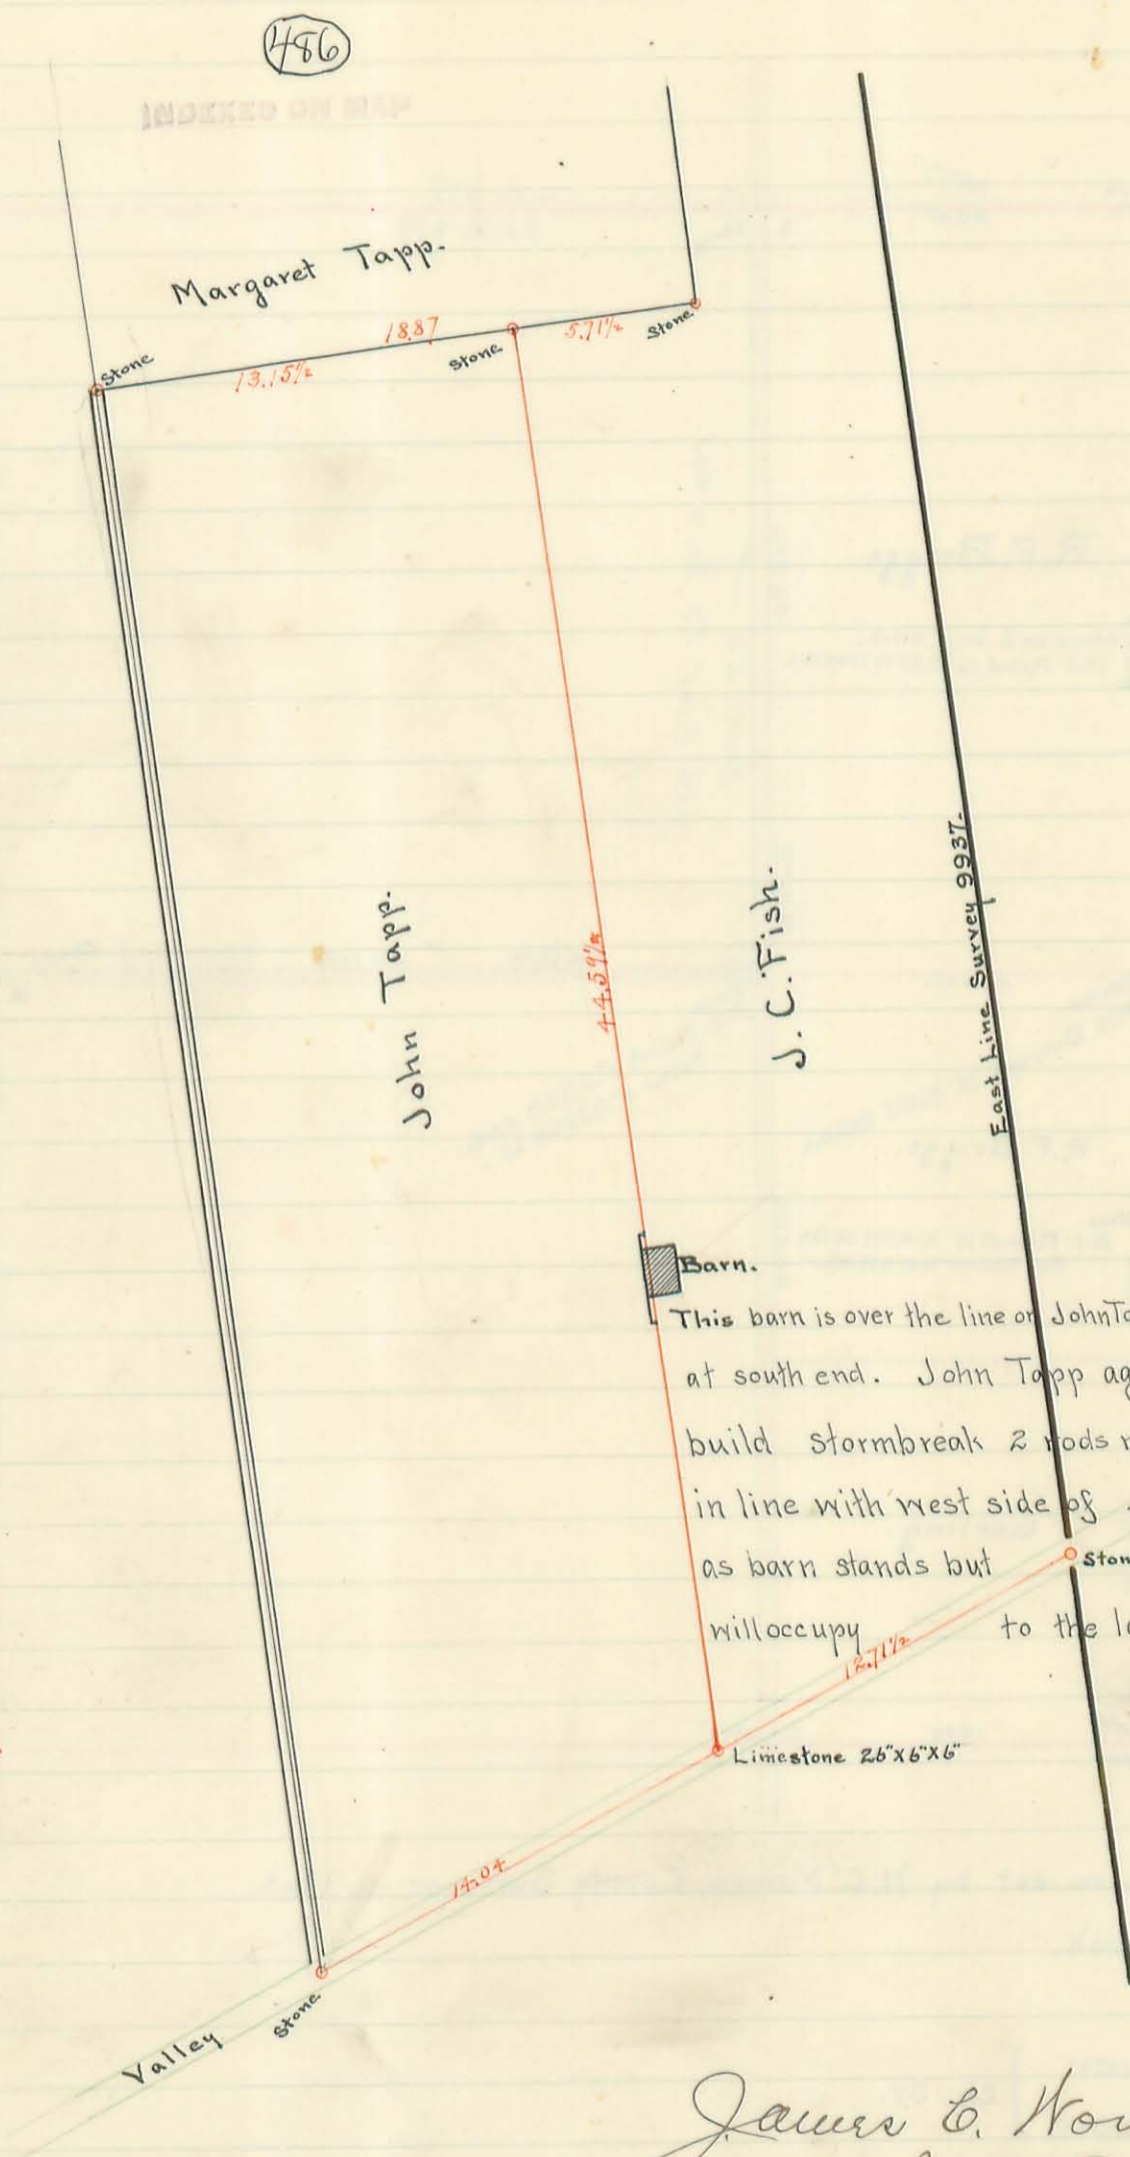 486
INDEXED ON MAP
Margaret Tapp.
18.87
5.71½
Stone
Stone
Stone
13.15½
John Tapp.
44.59½
J. C. Fish.
East Line Survey 9937.
Barn.
This barn is over the line on John Ta
at south end. John Tapp ag
build stormbreak 2 rods
in line with west side of
as barn stands but
Ston
will occupy to the lo
12.71½
Limestone 26"x6"x6"
14.04
Stone
Valley
James E. Wor